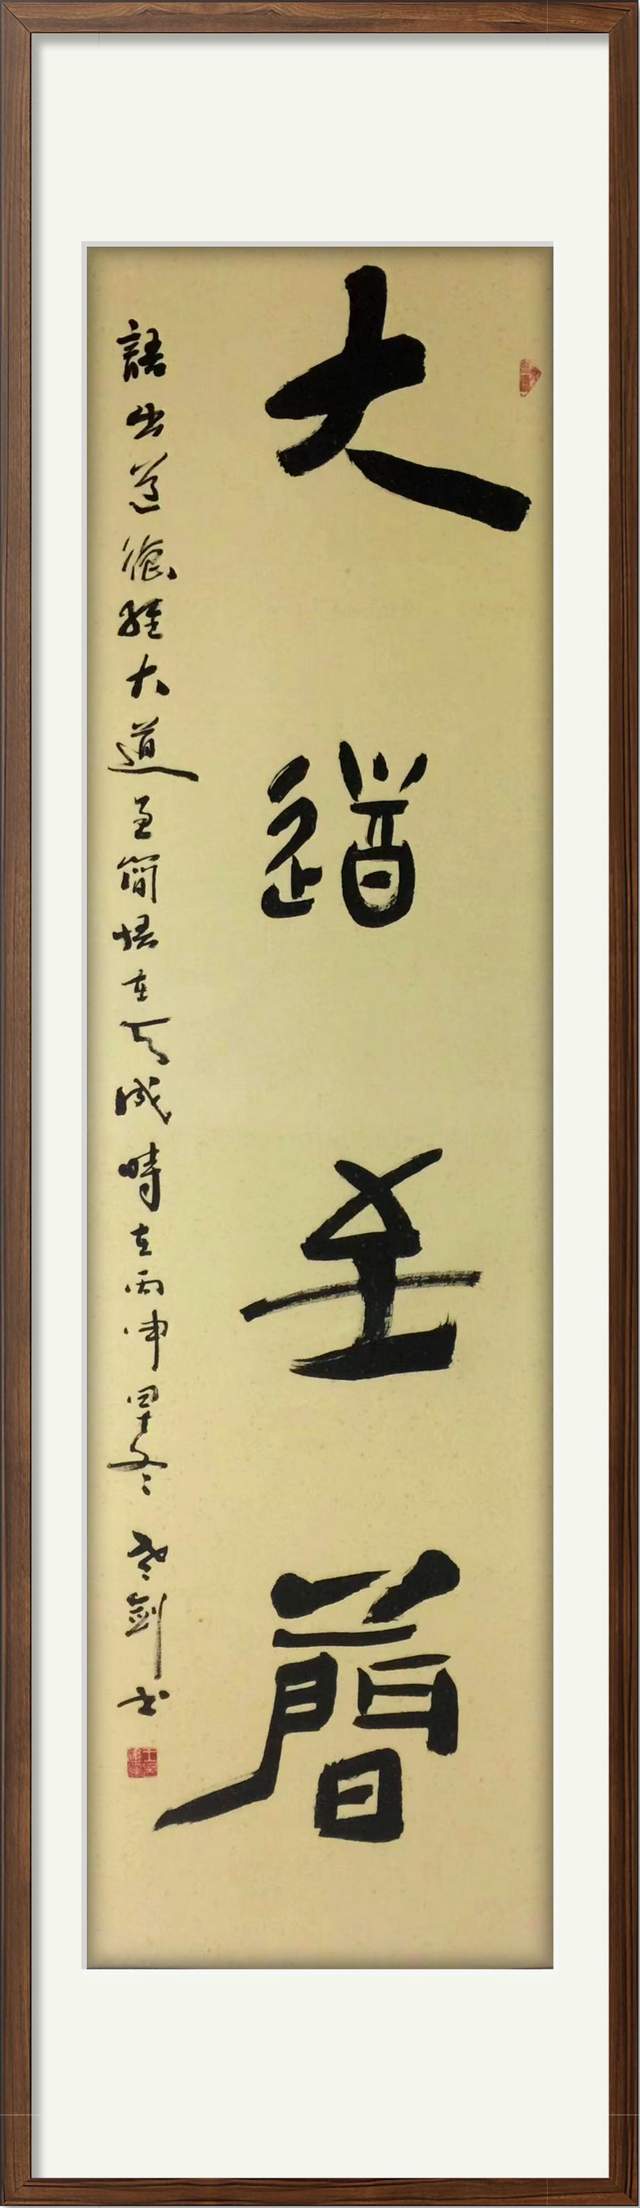 大道至简
語出道德經大道至簡悟在天成時在丙申年冬 老劍書